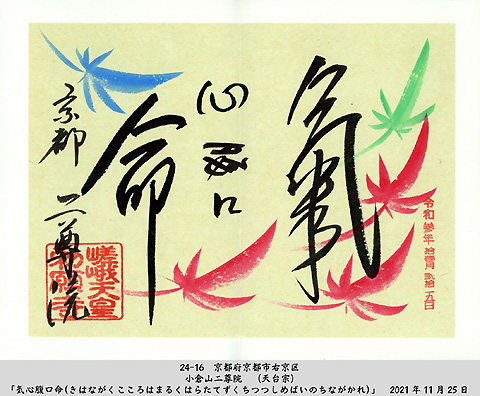 令和参年拾壱月弐拾五日
氣
心
口
命
京都 二尊院
嵯峨天皇
勅願寺
24-16 京都府京都市右京区
小倉山二尊院 (天台宗)
「気心腹口命(きはながくこころはまるくはらたてずくちつつしめばいのちながかれ)」 2021年11月25日